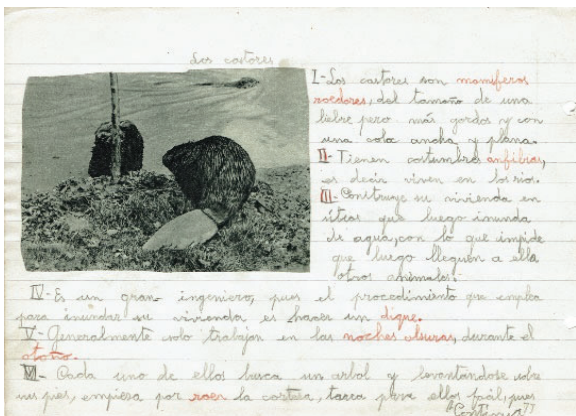 Los castores
I-Los castores son mamíferos
roedores, del tamaño de una
liebre pero más gordos y con
una cola ancha y plana.
II-Tienen costumbres anfibias,
es decir viven en los ríos.
III-Construye su vivienda en
sitios que luego inunda
de agua, con lo que impide
que luego lleguen a ella
otros animales.
IV-Es un gran ingeniero, pues el procedimiento que emplea
para inundar su vivienda es hacer un dique.
V-Generalmente solo trabajan en las noches obscuras, durante el
otoño.
VI-Cada uno de ellos busca un arbol y levantándose sobre
sus pies, empieza por roer la corteza, tarea para ellos fácil, pues
"Continua"